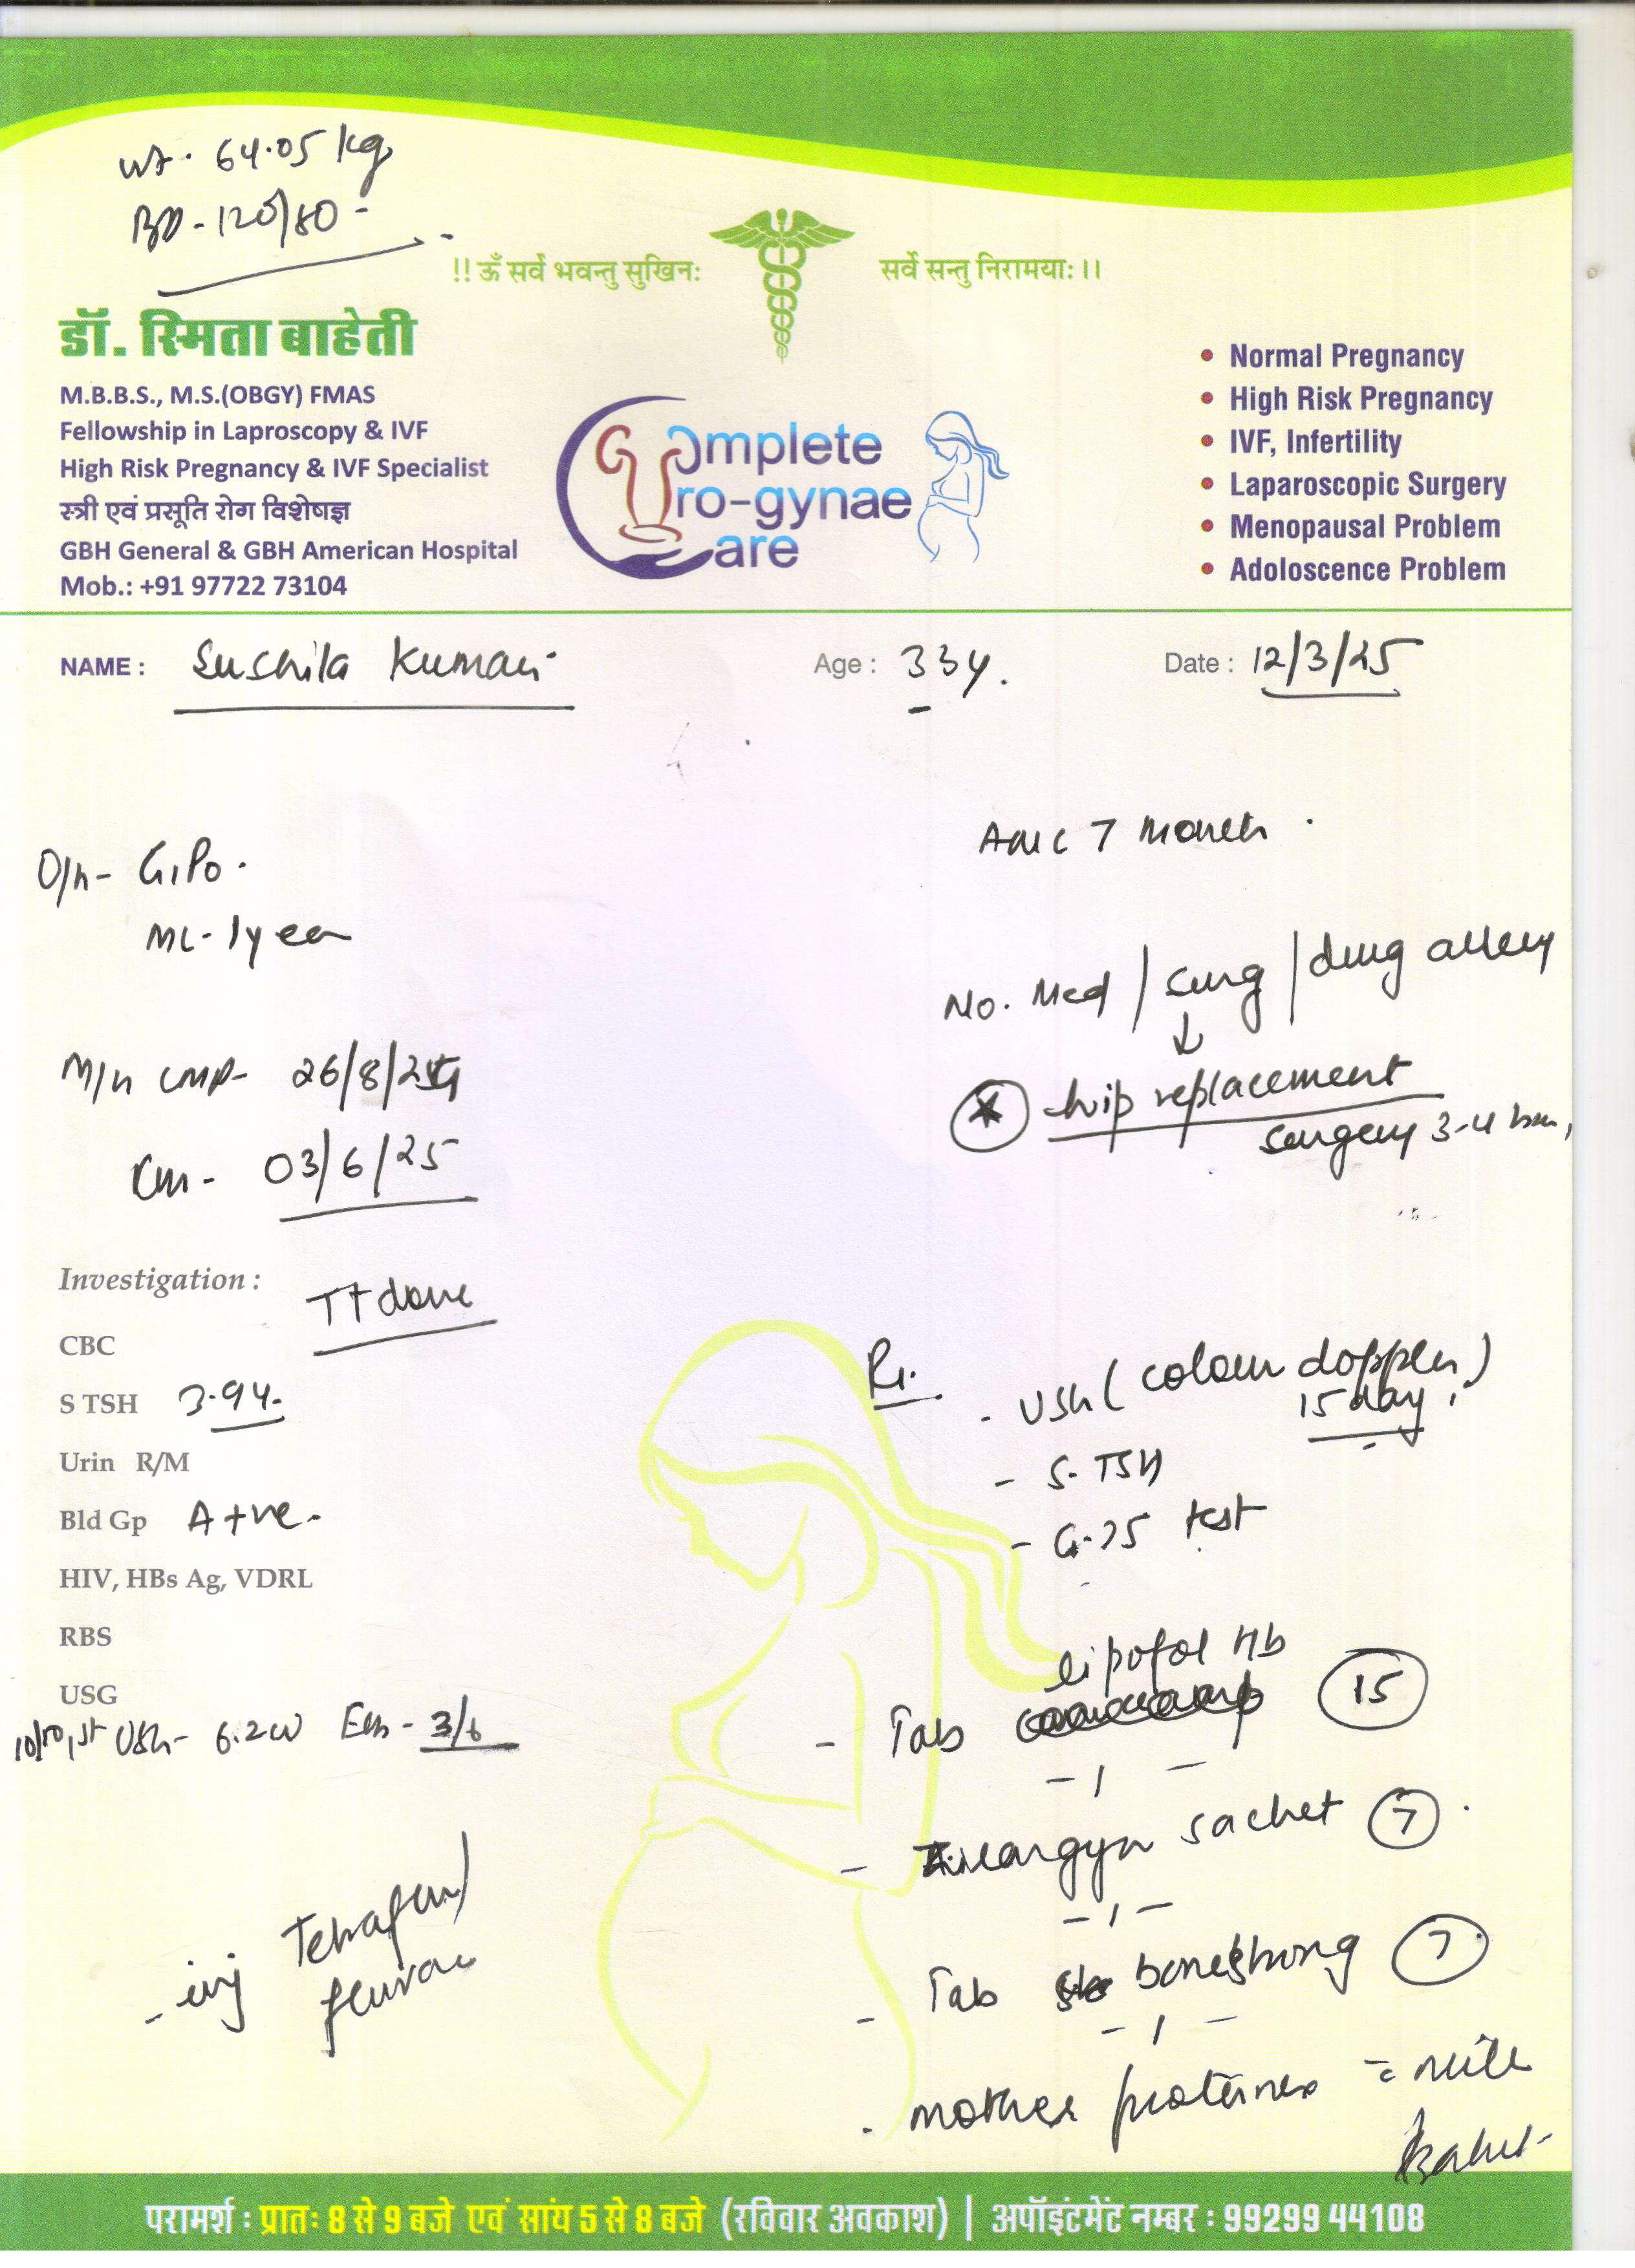 wt. 64.05 kg
BP - 120/80 -
!! ॐ सर्वे भवन्तु सुखिनः सर्वे सन्तु निरामयाः।।
डॉ. स्मिता बाहेती
M.B.B.S., M.S.(OBGY) FMAS
Fellowship in Laproscopy & IVF
High Risk Pregnancy & IVF Specialist
स्त्री एवं प्रसूति रोग विशेषज्ञ
GBH General & GBH American Hospital
Mob.: +91 97722 73104
Complete
Uro-gynae
Care
• Normal Pregnancy
• High Risk Pregnancy
• IVF, Infertility
• Laparoscopic Surgery
• Menopausal Problem
• Adoloscence Problem
NAME : Sushila Kumari Age : 33y. Date : 12/3/25
Amc 7 Month.
O/h - G1P0.
ML - 1 year
No. Med / surg / drug allergy
↓
hip replacement
surgery 3-4
M/h LMP - 26/8/24
- 03/6/25
Investigation : TT done
CBC
S TSH 3.94.
Urin R/M
Bld Gp A +ve.
HIV, HBs Ag, VDRL
RBS
USG
10/10, 1st USG - 6.2w - 3/6
- inj Tetrafer
Rx.
- USG (colour doppler)
15 day.
- S. TSH
- G-75 test
- Tab lipofol Hb 15
- 1 -
- argyn sachet 7
- 1 -
- Tab bonestrong 7
- 1 -
- mother proteinex = milk
परामर्श : प्रातः 8 से 9 बजे एवं सांय 5 से 8 बजे (रविवार अवकाश) | अपॉइंटमेंट नम्बर : 99299 44108